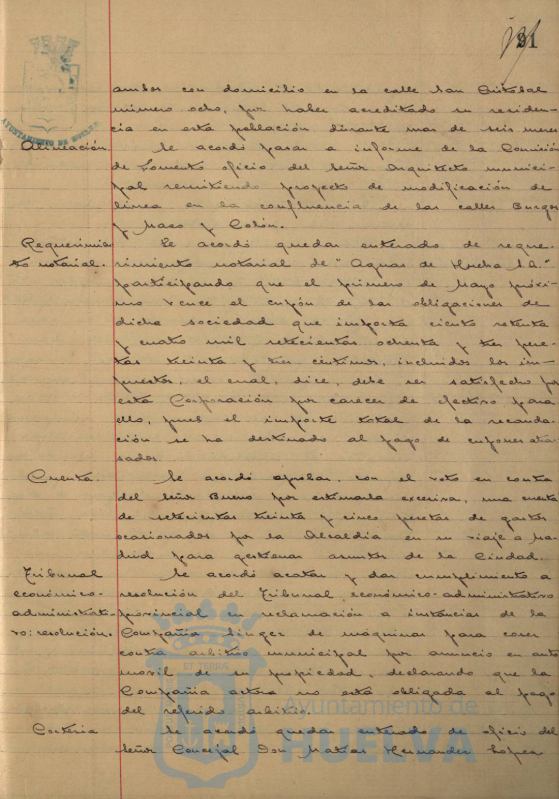 91
AYUNTAMIENTO DE HUELVA
ambos con domicilio en la calle San Cristobal
número ocho, por haber acreditado su residen-
cia en esta población durante mas de seis meses
Alineación. Se acordó pasar a informe de la Comisión
de Fomento oficio del Señor Arquitecto munici-
pal remitiendo proyecto de modificación de
línea en la confluencia de las calles Burgos
y Mazo y Colón.
Requerimien-
to notarial. Se acordó quedar enterado de reque-
rimiento notarial de "Aguas de Huelva S.A."
participando que el primero de Mayo próxi-
mo vence el cupón de las obligaciones de
dicha sociedad que importa ciento setenta
y cuatro mil setecientas ochenta y tres pese-
tas treinta y tres céntimos, incluidos los im-
puestos, el cual, dice, debe ser satisfecho por
esta Corporación por carecer de efectivo para
ello, pues el importe total de la recauda-
ción se ha destinado al pago de cupones atra-
sados.
Cuenta. Se acordó aprobar, con el voto en contra
del Señor Bueno por estimarla excesiva, una cuenta
de setecientas treinta y cinco pesetas de gastos
ocasionados por la Alcaldía en su viaje a Ma-
drid para gestionar asuntos de la Ciudad.
Tribunal
económico-
administrati-
vo: resolución. Se acordó acatar y dar cumplimiento a
resolución del Tribunal económico-administrativo
provincial en reclamación a instancias de la
Compañía Singer de máquinas para coser
contra arbitrio municipal por anuncio en auto
movil de su propiedad, declarando que la
Compañía actora no está obligada al pago
del referido arbitrio.
Cortesia Se acordó quedar enterado de oficio del
Señor Concejal Don Matias Hernandez Lopez
Ayuntamiento de
HUELVA